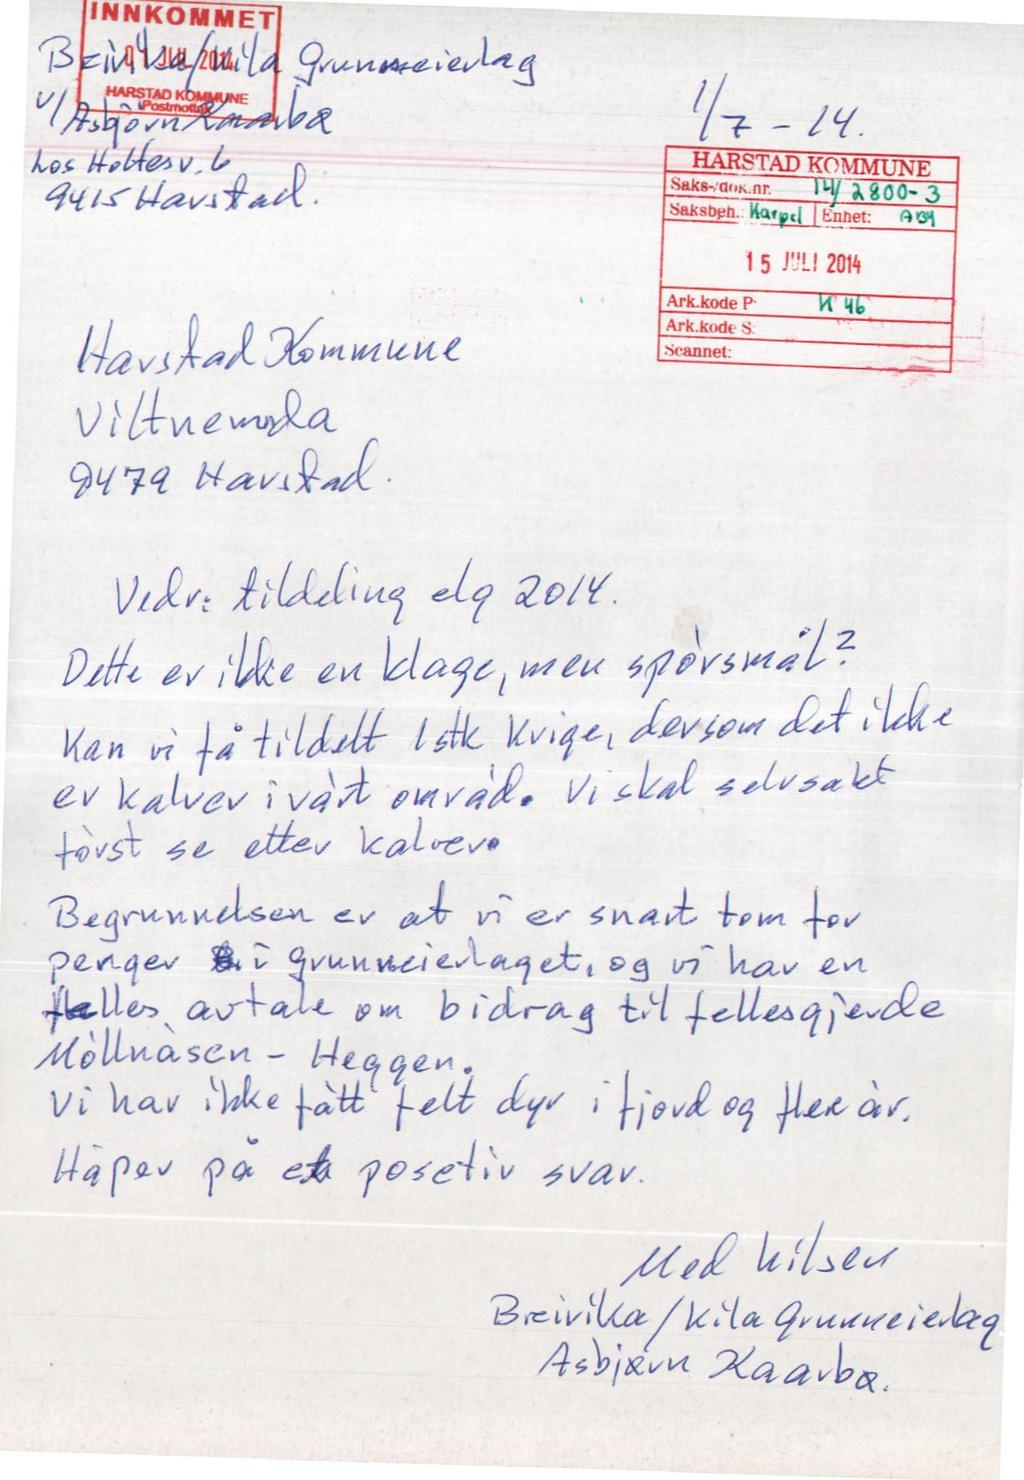 INNKOMMET
JUL 2014
HARSTAD KOMMUNE
Postmottak
Breivika/Kila Grunneierlag
v/Asbjörn Kaarbø
9415 Harstad.
1/7-14.
HARSTAD KOMMUNE
Saks-/dok.nr. 14/2800-3
Saksbeh.: Karpel Enhet:
15 JULI 2014
Ark.kode P: K46
Ark.kode S:
Scannet:
Harstad Kommune
Viltnemda
9479 Harstad.
Vedr: tildeling elg 2014.
Dette er ikke en klage, men spörsmål?
Kan vi få tildelt 1 stk kvige, dersom det ikke
er kalver i vårt områd. Vi skal selvsakt
först se etter kalver.
Begrunnelsen er at vi er snart tom for
penger i grunneierlaget, og vi har en
felles avtale om bidrag til fellesgjerde
Möllnåsen - Heggen.
Vi har ikke fått felt dyr i fjord og flere år.
Håper på et posetiv svar.
Med hilsen
Breivika/Kila Grunneierlag
Asbjørn Kaarbø.